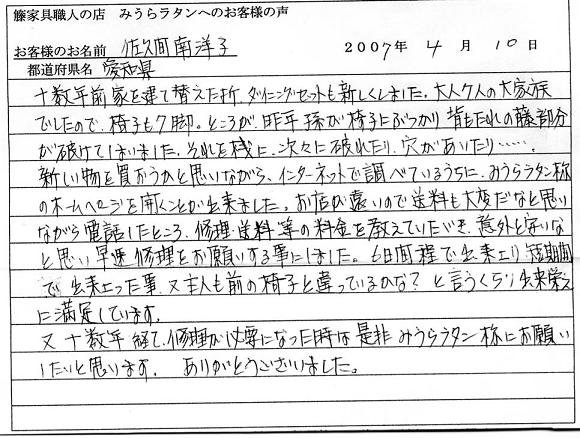 籐家具職人の店 みうらラタンへのお客様の声
お客様のお名前 佐久間南洋子 2007年 4月 10日
都道府県名 愛知県
十数年前家を建て替えた折、ダイニングセットも新しくしました。大人7人の大家族
でしたので、椅子も7脚。ところが、昨年孫が椅子にぶつかり背もたれの藤部分
が破けてしまいました。それを機に、次々に破れたり、穴があいたり……。
新しい物を買おうかと思いながら、インターネットで調べているうちに、みうらラタン様
のホームページを開くことが出来ました。お店が遠いので送料も大変だなと思い
ながら電話したところ、修理、送料等の料金を教えていただき、意外と安いな
と思い早速修理をお願いする事にしました。6日間程で出来上り短期間
で出来上った事、又主人も前の椅子と違っているかな?と言うくらい出来栄え
に満足しています。
又十数年経て、修理が必要になった時は是非みうらラタン様にお願い
したいと思います。 ありがとうございました。